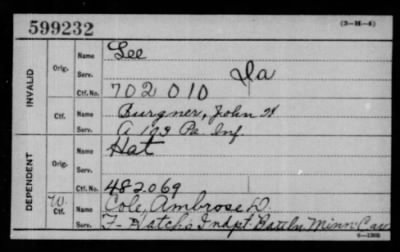 599232
(3-M-4)
INVALID
Orig.
Name
Lee
Serv.
Ia
Ctf. No.
702010
Ctf.
Name
Burgner, John H
Serv.
A 173 Pa Inf.
DEPENDENT
Orig.
Name
Hat
Serv.
Ctf. No.
482069
W.
Ctf.
Name
Cole, Ambrose D.
Serv.
F- Hatch's Indpt Battln Minn Cav